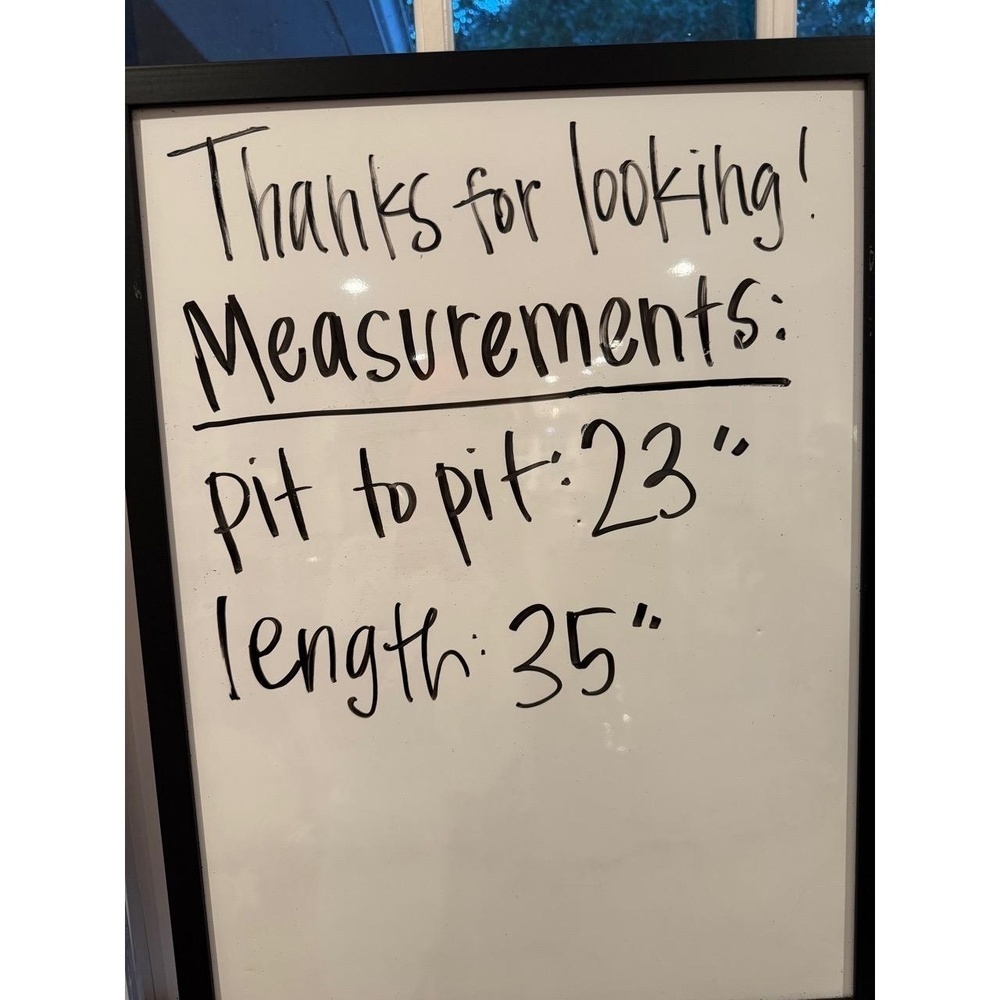 Thanks for looking!
Measurements:
pit to pit: 23"
length: 35"